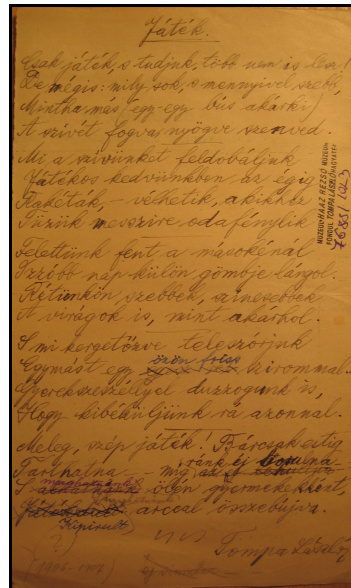 Játék.
Csak játék, s tudjuk, több nem is lesz!
De mégis: mily sok, s mennyivel szebb,
Mintha más (egy-egy bús akárki)
A szivét fogvanyögve szenved.
Mi a szivünket feldobáljuk
Játékos kedvünkben az égig
Rakéták, – vélhetik, akikhez
Tüzük messzire odafénylik
Felettünk fent a másokénál
Izzóbb nap külön gömbje lángol.
Rétünkön szebbek, szinesebbek
A virágok is, mint akárhol.
S mi kergetőzve teleszórjuk
Egymást egy özön friss szirommal.
Gyerekszeszéllyel duzzogunk is,
Hogy kibéküljünk rá azonnal.
Meleg, szép játék! Bárcsak estig
Tarthatna – mig ránk éj borulna
S ölén gyermekekként,
(Kipirult) arccal összebújva.
Tompa László
(?)
MUZEUL HAAZ REZSŐ MÚZEUM
FONDUL TOMPA LÁSZLÓ HAGYATÉK